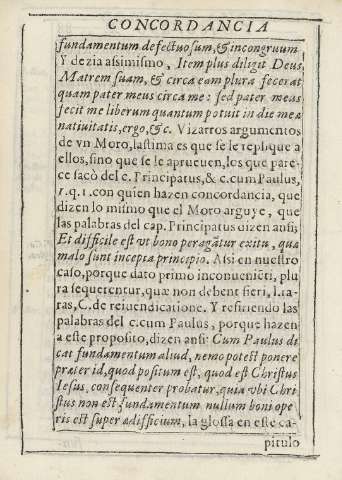 CONCORDANCIA
fundamentum defectuosum, & incongruum
Y dezia assimismo, Item plus diligit Deus,
Matrem suam, & circa eam plura fecerat
quam pater meus circa me: sed pater meus
fecit me liberum quantum potuit in die mea
natiuitatis, ergo, &c. Vizarros argumentos
de vn Moro, lastima es que se le replique a
ellos, sino que se le aprueuen, los que pare-
ce sacò del c. Principatus, & c. cum Paulus,
1. q. 1. con quien hazen concordancia, que
dizen lo mismo que el Moro arguye, que
las palabras del cap. Principatus dizen ansi;
Et difficile est vt bono peragãtur exitu, quæ
malo sunt incepta principio. Assi en nuestro
caso, porque dato primo inconueniẽti, plu
ra sequerentur, quæ non debent fieri, l. ta-
ras, C. de reiuendicatione. Y refiriendo las
palabras del c. cum Paulus, porque hazen
a este proposito, dizen ansi: Cum Paulus di
cat fundamentum aliud, nemo potest ponere
præter id, quod positum est, quod est Christus
Iesus, consequenter probatur, quia vbi Chri
stus non est fundamentum nullum boni ope
ris est super ædificium, la glossa en este ca-
pitulo